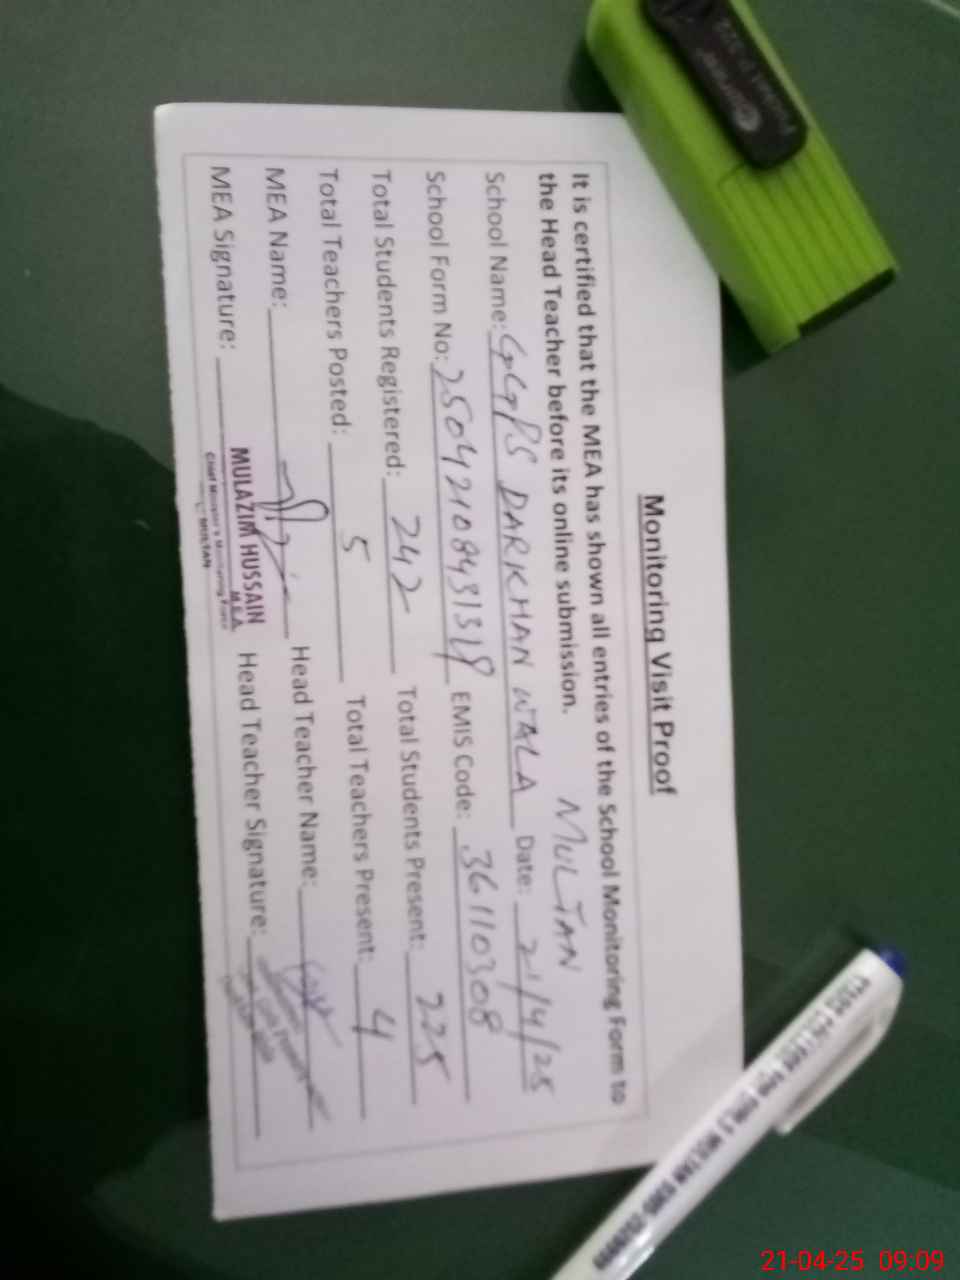 Monitoring Visit Proof
It is certified that the MEA has shown all entries of the School Monitoring Form to
the Head Teacher before its online submission.
MULTAN
School Name: GGPS DARKHAN WALA Date: 21/4/25
School Form No: EMIS Code: 36110308
Total Students Registered: 242 Total Students Present: 225
Total Teachers Posted: 5 Total Teachers Present: 4
MEA Name: Head Teacher Name:
MEA Signature: Head Teacher Signature:
MULAZIM HUSSAIN
M.E.A.
Chief Minister's Monitoring Force
MULTAN
21-04-25 09:09